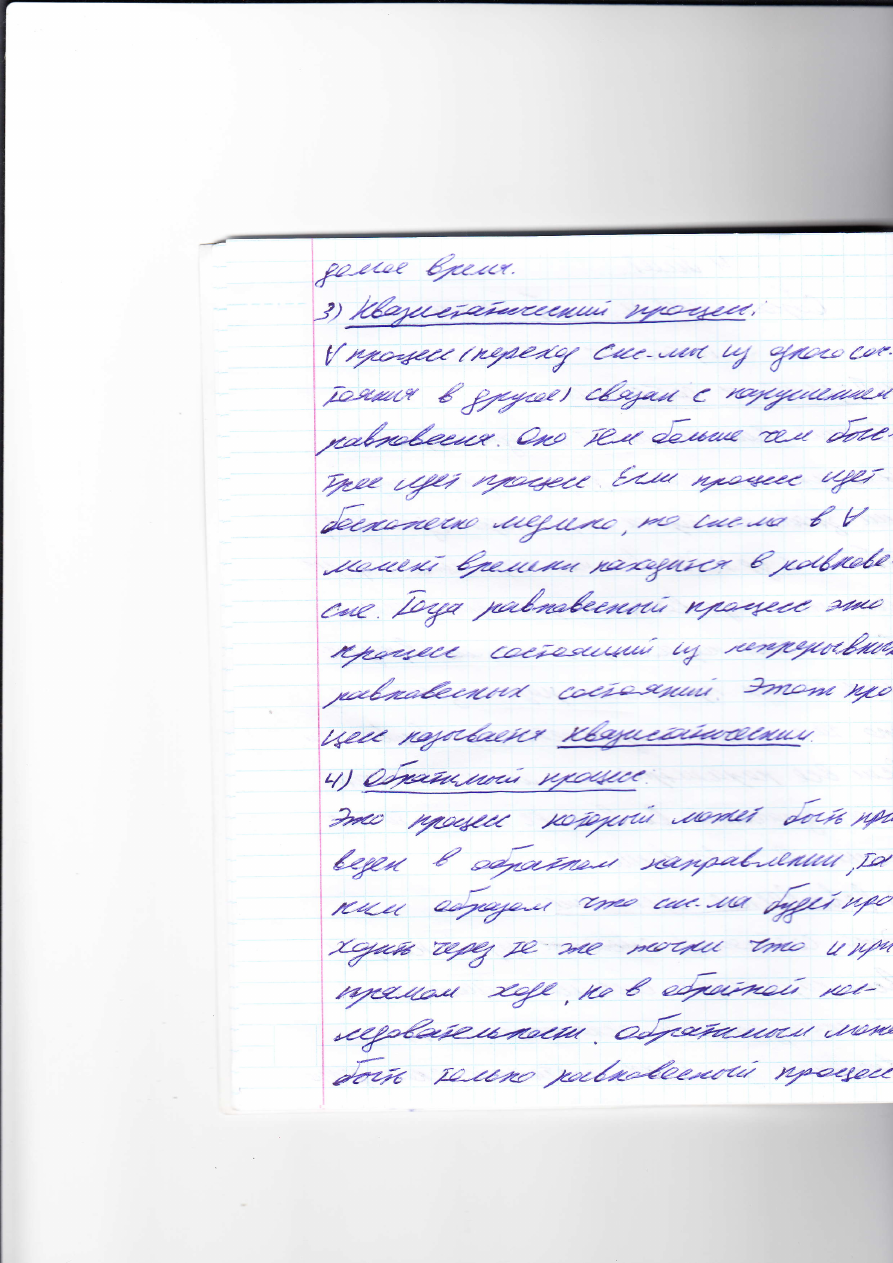 долгое время.
3) Квазистатический процесс:
∀ процесс (переход сис-мы из одного сос-
тояния в другое) связан с нарушением
равновесия. Оно тем больше чем быс-
трее идет процесс. Если процесс идет
бесконечно медлено, то сис-ма в ∀
момент времени находится в равнове-
сие. Тогда равновесный процесс это
процесс состоящий из непрерывных
равновесных состояний. Этот про
цесс называется квазистатическим.
4) Обратимый процесс:
Это процесс который может быть при
веден в обратном направлении, та
ким образом что сис-ма будет про
ходить через те же точки что и при
прямом ходе, но в обратной пос-
ледовательности. Обратимым може
быть только равновесный процесс